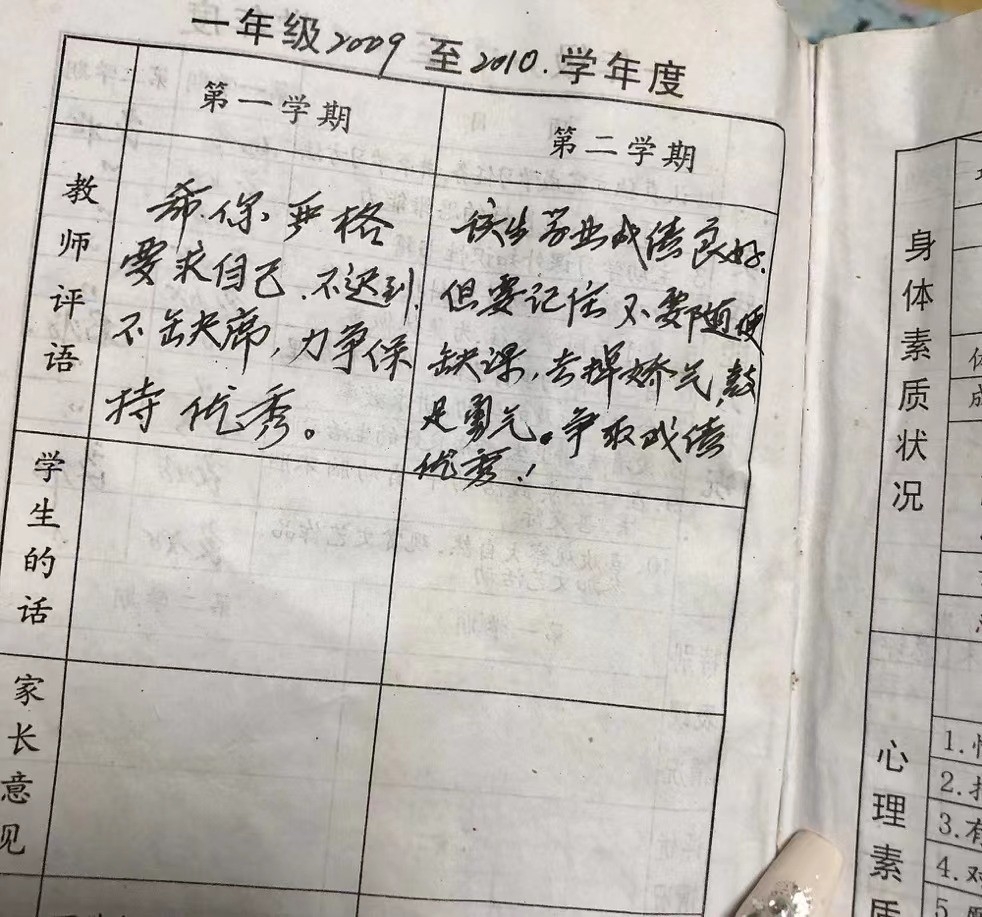 一年级2009至2010.学年度
第一学期
第二学期
教师评语
希你严格
要求自己.不迟到.
不缺席,力争保
持优秀。
该生学业成绩良好.
但要记住不要随便
缺课,去掉娇气,鼓
足勇气。争取成绩
优秀!
学生的话
家长意见
身体素质状况
心理素质
1.
2.
3.有
4.对
5.